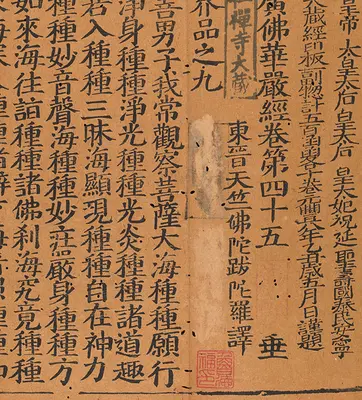 皇帝 太皇太后 皇太后 皇太妃祝延 聖壽國泰民安
大藏經印板一副總計五百 十卷元豐八年乙丑歲五月日謹題
廣佛華嚴經卷第四十五 垂
禪寺大藏
東晉天竺佛陀跋陀羅譯
界品之九
善男子我常觀察菩薩大海種種願行
淨身種種淨光種種光炎種種諸道趣
若入種種三昧海顯現種種自在神力
種種妙音聲海種種妙莊嚴身種種方
如來海往詣種種諸佛刹海究竟種種